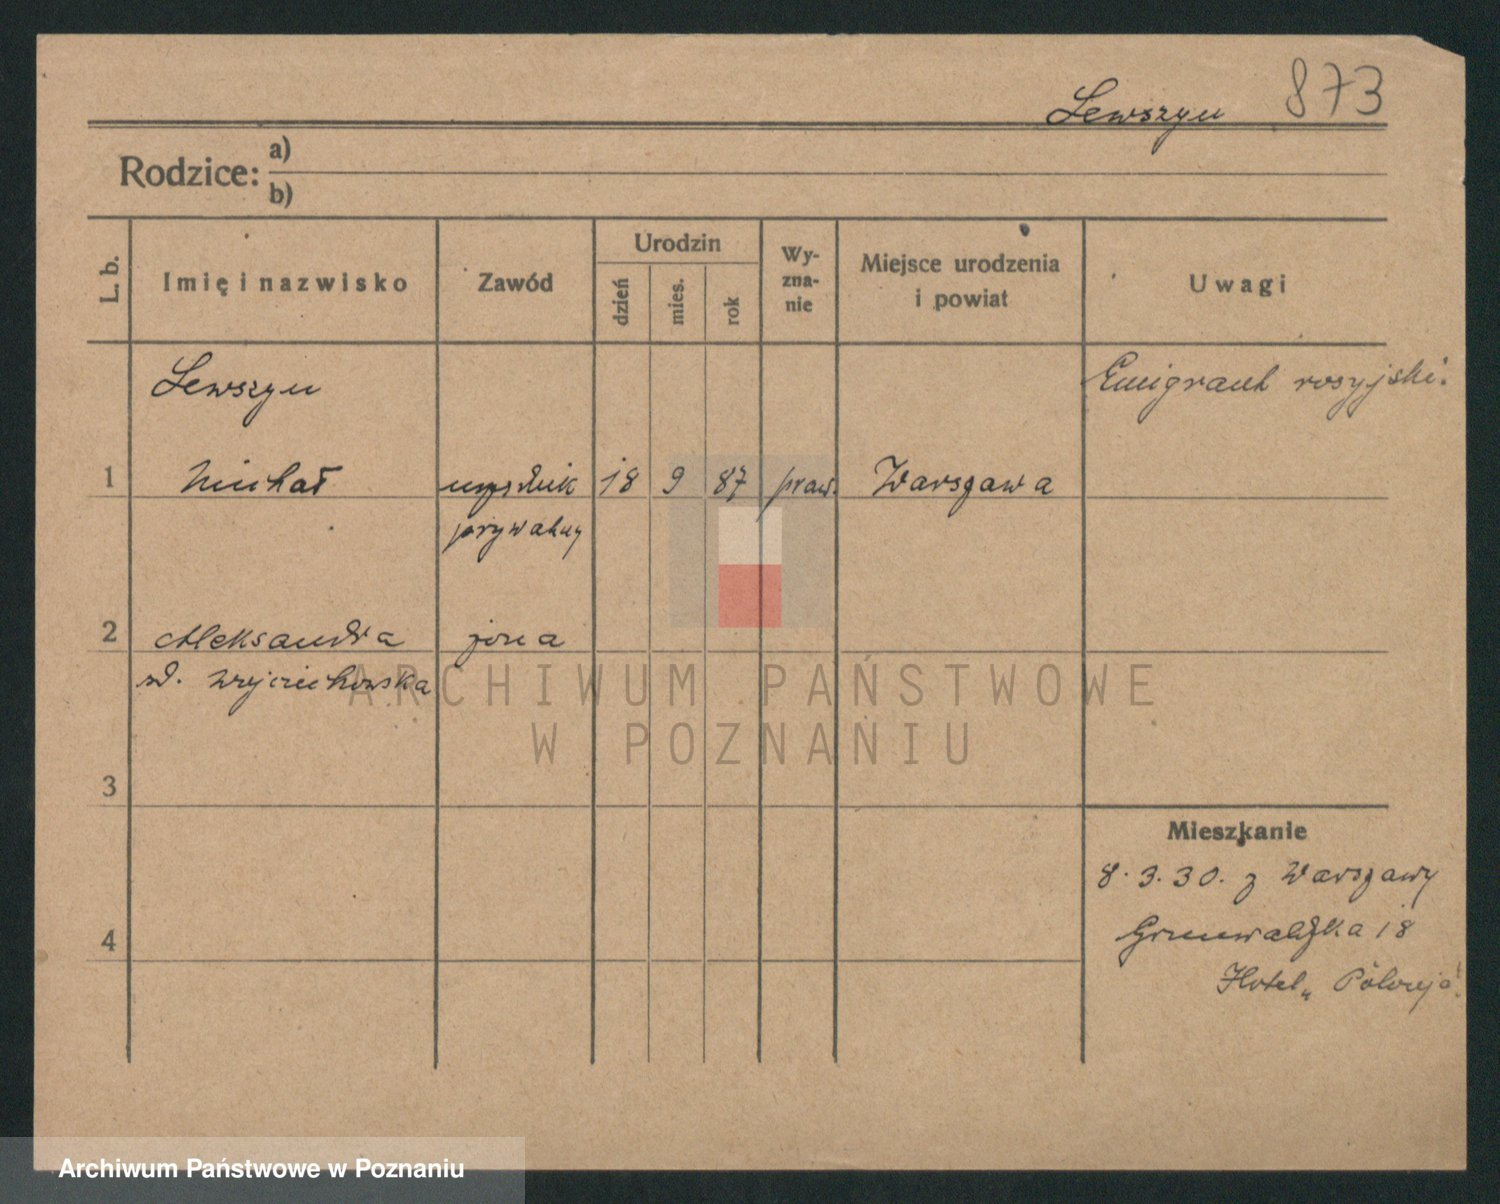 Lewszyn 873
Rodzice: a)
b)
L. b. Imię i nazwisko Zawód Urodzin dzień mies. rok Wy-zna-nie Miejsce urodzenia i powiat Uwagi
Lewszyn Emigrant rosyjski.
1 Michał urzędnik 18 9 87 praw. Warszawa
prywatny
2 Aleksandra żona
zd. Wojciechowska
ARCHIWUM PAŃSTWOWE
W POZNANIU
3
Mieszkanie
8.3.30. z Warszawy
4 Grunwaldzka 18
Hotel „Polonja"
Archiwum Państwowe w Poznaniu